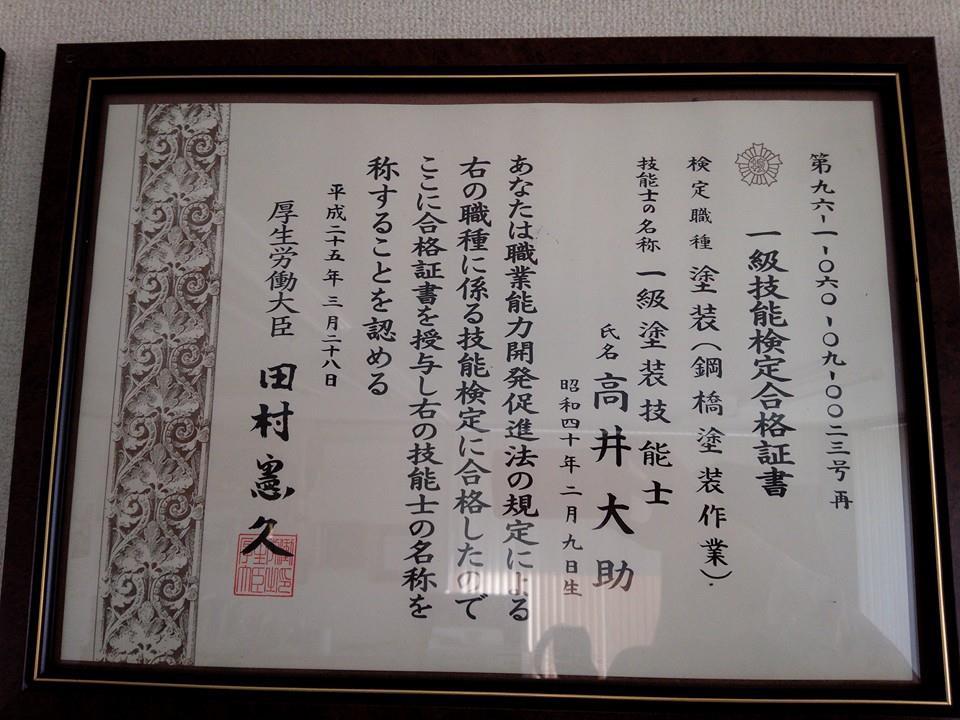 第九六-一-〇六〇-〇九-〇〇二三号再
一級技能検定合格証書
検定職種 塗装(鋼橋塗装作業)
技能士の名称 一級塗装技能士
氏名 高井大助
昭和四十年二月九日生
あなたは職業能力開発促進法の規定による
右の職種に係る技能検定に合格したので
ここに合格証書を授与し右の技能士の名称を
称することを認める
平成二十五年三月二十八日
厚生労働大臣 田村憲久